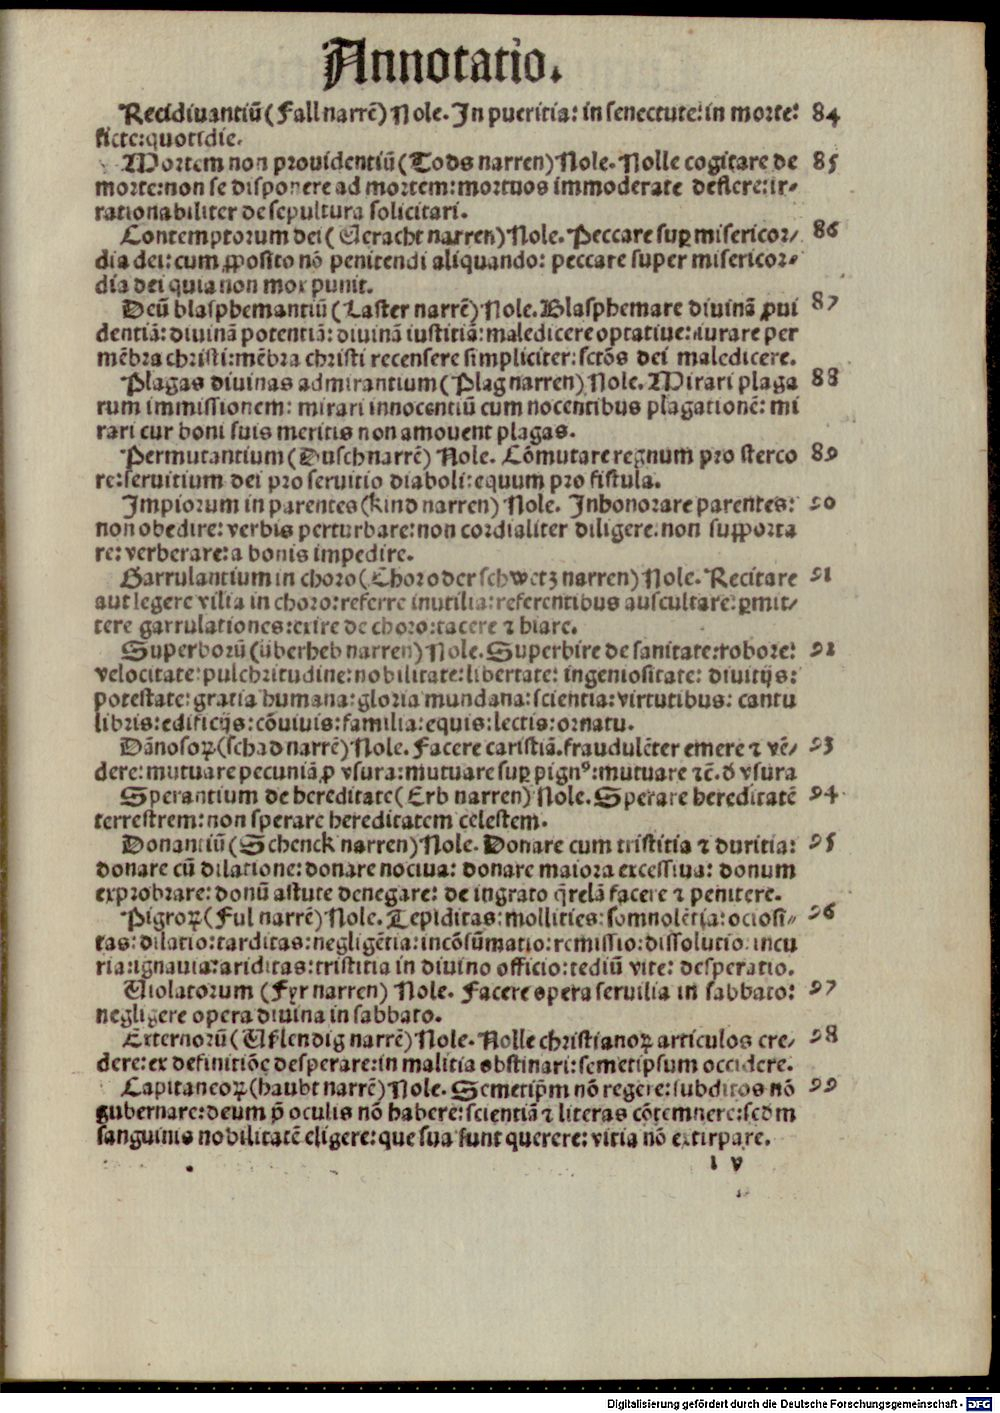 Annotatio.
Recidiuantiū (Fall narrē) Nole. In pueritia: in senectute: in morte: 84
ficte: quotidie.
Mortem non prouidentiū (Tods narren) Nole. Nolle cogitare de 85
morte: non se disponere ad mortem: mortuos immoderate deflere: ir⸗
rationabiliter de sepultura solicitari.
Contemptorum dei (Veracht narren) Nole. Peccare suꝑ misericor⸗ 86
dia dei: cum ꝓposito nō penitendi aliquando: peccare super misericor⸗
dia dei quia non mox punit.
Deū blasphemantiū (Laster narrē) Nole. Blasphemare diuinā ꝓui 87
dentiā: diuinā potentiā: diuinā iustitiā: maledicere optatiue: iurare per
mēbra christi: mēbra christi recensere simpliciter: sctōs dei maledicere.
Plagas diuinas admirantium (Plag narren) Nole. Mirari plaga 88
rum immissionem: mirari innocentiū cum nocentibus plagationē: mi
rari cur boni suis meritis non amouent plagas.
Permutantium (Dusch narrē) Nole. Cōmutare regnum pro sterco 89
re: seruitium dei pro seruitio diaboli: equum pro fistula.
Impiorum in parentes (kind narren) Nole. Inhonorare parentes: 90
non obedire: verbis perturbare: non cordialiter diligere. non suꝓporta
re: verberare: a bonis impedire.
Garrulantium in choro (Chor oder schwetz narren) Nole. Recitare 91
aut legere vilia in choro: referre inutilia: referentibus auscultare: ꝑmit⸗
tere garrulationes: exire de choro: tacere ⁊ hiare.
Superborū (überheb narren) Nole. Superbire de sanitate: robore: 92
velocitate: pulchritudine: nobilitate: libertate: ingeniositate: diuitijs:
potestate: gratia humana: gloria mundana: scientia: virtutibus: cantu
libris: edificijs: cōuiuis: familia: equis: lectis: ornatu.
Dānosoꝝ (schad narrē) Nole. Facere caristiā. fraudulēter emere ⁊ vē⸗ 93
dere: mutuare pecuniā ꝓ vsura: mutuare suꝑ pignꝰ: mutuare ⁊c̄. ð vsura
Sperantium de hereditate (Erb narren) Nole. Sperare hereditatē 94
terrestrem: non sperare hereditatem celestem.
Donantiū (Schenck narren) Nole. Donare cum tristitia ⁊ duritia: 95
donare cū dilatione: donare nociua: donare maiora excessiua: donum
exprobrare: donū astute denegare: de ingrato q̄relā facere ⁊ penitere.
Pigroꝝ (Ful narrē) Nole. Tepiditas: mollities: somnolētia: ociosi⸗ 96
tas: dilatio: tarditas: negligētia: incōsūmatio: remissio: dissolutio: incu
ria: ignauia: ariditas: tristitia in diuino officio: tediū vite: desperatio.
Violatorum (Fyr narren) Nole. Facere opera seruilia in sabbato: 97
negligere opera diuina in sabbato.
Externorū (Uslendig narrē) Nole. Nolle christianoꝝ articulos cre⸗ 98
dere: ex definitiōe desperare: in malitia obstinari: semetipsum occidere.
Capitaneoꝝ (haubt narrē) Nole. Semetip̄m nō regere: subditos nō 99
gubernare: deum p̄ oculis nō habere: scientiā ⁊ literas cōtemnere: scd̄m
sanguinis nobilitatē eligere: que sua sunt querere: vitia nō extirpare.
l v
Digitalisierung gefördert durch die Deutsche Forschungsgemeinschaft - DFG